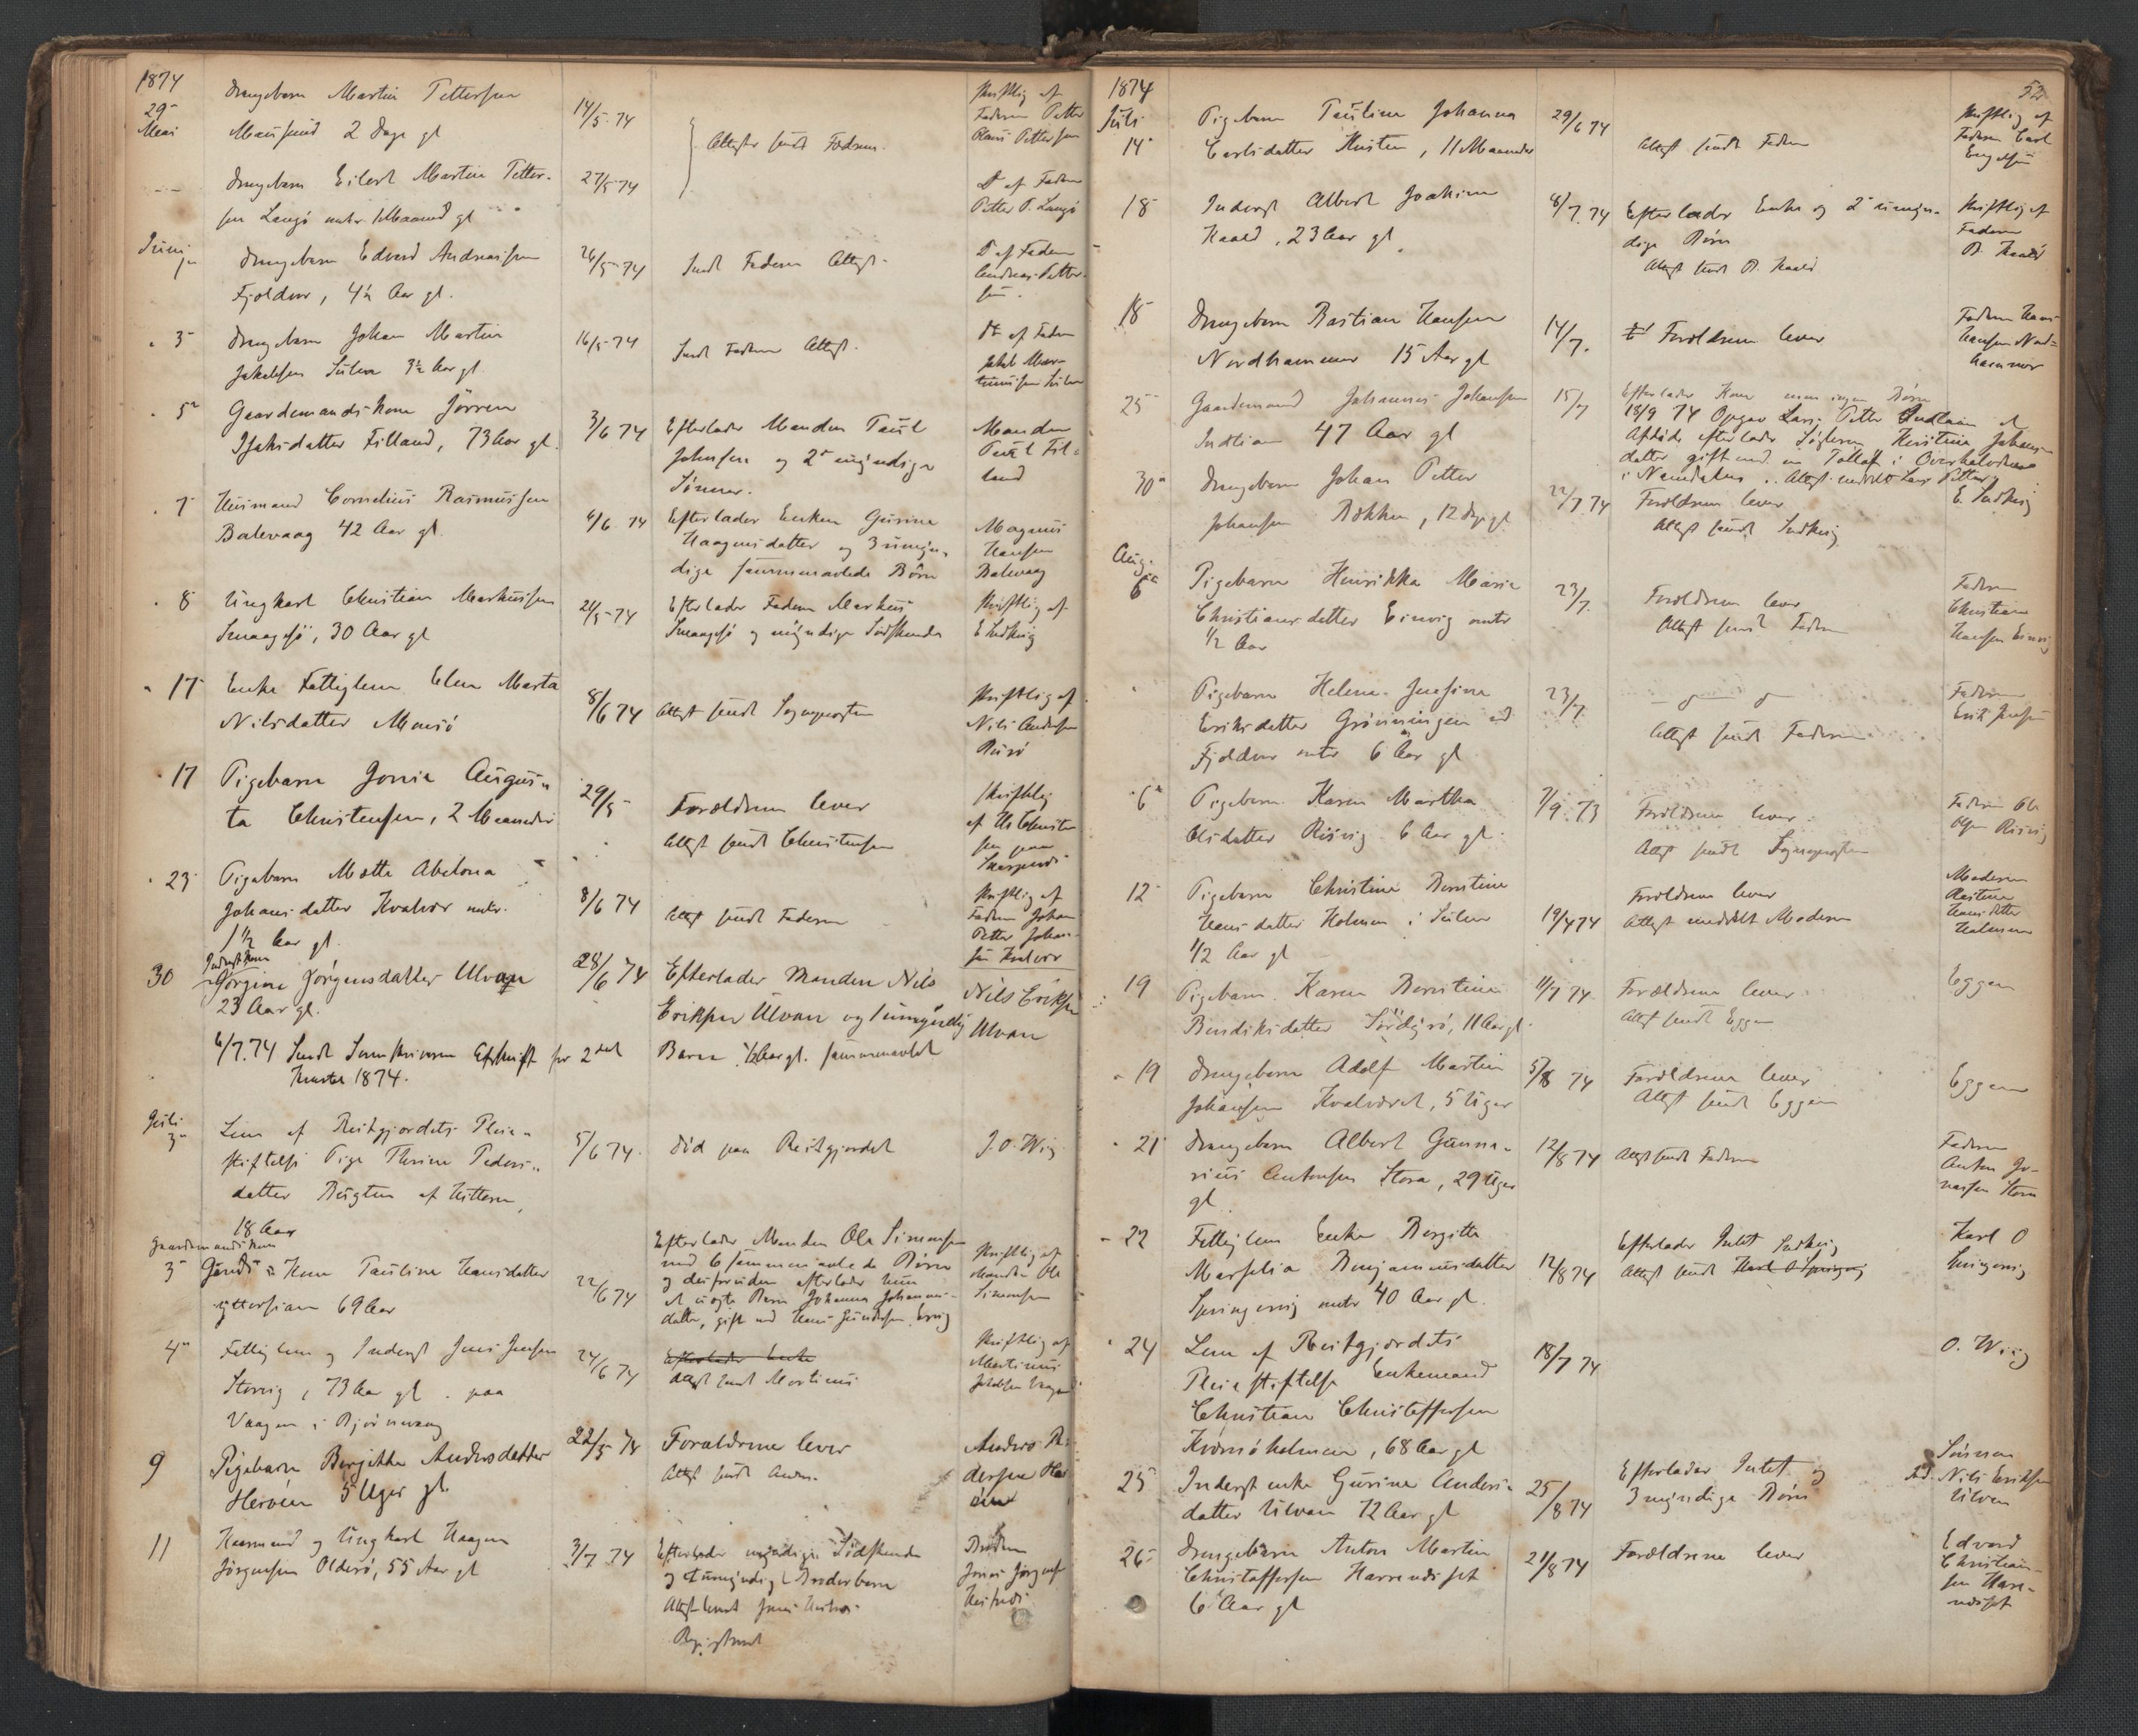 1874
29
Mai
Drengebarn Martin Pettersen
Mausund 2 Dage gl
14/5 74
Attester sendt Fædrene.
Skriftlig af
Faderen Petter
Pettersen
Drengebarn Eilert Martin Petter-
sen Langö 1 Maaned gl
27/5 74
Do af Faderen
Petter P. Langö
Juni
1
Drengebarn Edvard Andreassen
Fjoldvær, 4½ Aar gl.
26/5 74
Sendt Faderen Attest.
Do af Faderen
Andreas Petter-
sen.
3
Drengebarn Johan Martin
Jakobsen Sulen 3½ Aar gl
16/5 74
Sendt Faderen Attest.
Do af Faderen
Jakob Mar-
tinussen Sulen
5
Gaardmandskone Jörren
Isaksdatter Filland, 73 Aar gl
3/6 74
Efterlader Manden Paul
Johnsen og 2 myndige
Sönner.
Manden
Paul Fil-
land
7
Husmand Cornelius Rasmussen
Balevaag 42 Aar gl
6/6 74
Efterlader Enken Gurine
Haagensdatter og 3 umyn-
dige sammenavlede Börn
Magnus
Hansen
Balevaag
8
Ungkarl Christian Markussen
Smaagesö, 30 Aar gl
21/5 74
Efterlader Faderen Markus
Smaagesö og myndige Södskende
Skriftlig af
E Ludvig
17
Enke Fattiglem Elen Marta
Nilsdatter
8/6 74
Attest sendt Sognepresten
Skriftlig af
Nils Andersen
17
Pigebarn Jonia Augus-
ta Christensen, 2 Maaneder
29/5
Forældrene lever
Attest sendt Christensen
Skriftlig
af Christen-
sen paa
23
Pigebarn Mette Abelona
Johansdatter Kvalvær
1½ Aar gl.
8/6 74
Attest sendt Faderen
Skriftlig af
Faderen Johan
Petter Johan-
sen Kvalvær
30
Inderst Kone
Jörgine Jörgensdatter Ulvan
23 Aar gl.
28/6 74
Efterlader Manden Nils
Eriksen Ulvan og 1 umyndig
Barn ½ Aar gl. sammenavlet
Nils Eriksen
Ulvan
6/7. 74 Sendt Sorenskriveren Afskrift for 2det
Kvartal 1874.
Juli
3
Lem af Reitgjerdets Pleie-
stiftelse Pige Therine Peders-
datter af Hitteren,
18 Aar
5/6 74
död paa Reitgjerdet
J. O. Wiig
Gaardmandskone
3
Kone Pauline Hansdatter
69 Aar
22/6 74
Efterlader Manden Ole Simonsen
med 6 sammenavlede Börn
og desforuden efterlader hun
et uægte Barn Johanna Johannes-
datter, gift med Hans
Skriftlig af
Manden Ole
Simonsen
4
Fattiglem og Inderst Jens Jensen
Storvig, 73 Aar gl. paa
Vaagen i Björnevaag
24/6 74
Efterlader Enke
Attest sendt Martinus
Skriftlig af
Martinus
Jakobsen Vaagen
9
Pigebarn Birgitte Andersdatter
5 Uger gl.
22/5 74
Forældrene lever
Attest sendt Anders.
Anders
11
Kaarmand og Ungkarl Haagen
Jörgensen Oldersö, 55 Aar gl
3/7 74
Efterlader myndige Södskende
og 1 umyndig Broderbarn
Attest sendt Jens
Registreret
Broderen
Jens Jörgensen
1874
52
Juli
14
Pigebarn Pauline Johanna
Carlsdatter Kusten, 11 Maaneder
29/6 74
Attest sendt Faderen
Skriftlig af
Faderen Carl
Engelsen
18
Inderst Albert Joakim
Kaald, 23 Aar gl
8/7. 74
Efterlader Enke og 2 umyn-
dige Börn
Attest sendt P. Kaald
Skriftlig af
Faderen
P. Kaald
18
Drengebarn Bastian Hansen
Nordhammer 15 Aar gl
14/7.
Forældrene lever
Faderen Hans
Hansen Nord-
hammer
25
Gaardmand Johannes Johansen
Indlian 47 Aar gl
15/7
Efterlader Kone men ingen Börn
18/9 74 Opgav Lars Petter Indlian at
Afdöde efterlader Söster Kristine Johans-
datter gift med en i Overhalvden
i Namdalen. Attest meddelt Lars Petter
30
Drengebarn Johan Petter
Johansen Bekken, 12 Dage gl
22/7 74
Forældrene lever
Attest sendt Ludvig
E. Ludvig
Aug.
6
Pigebarn Henrikka Maria
Christiansdatter Einvig
1/2 Aar
23/7.
Forældrene lever
Attest sendt Faderen
Faderen
Christian
Hansen Einvig
Pigebarn Helena Josefine
Eriksdatter Grönningen ved
Fjoldvær 6 Aar gl
23/7
Attest sendt Faderen
Faderen
Erik Jensen
6
Pigebarn Karen Martha
Olsdatter Risvig 6 Aar gl.
7/9. 73
Forældrene lever
Attest sendt Sognepresten
Faderen Ole
Olsen Risvig
12
Pigebarn Christine Berntine
Hansdatter Holmen i Sulen
1/2 Aar gl
19/4 74
Forældrene lever
Attest meddelt Moderen
Moderen
Hansdatter
Holmen
19
Pigebarn Karen Berntine
Bendiksdatter Sördyrö, 11 Aar gl.
11/7 74
Forældrene lever
Attest sendt Eggen
Eggen
19
Drengebarn Adolf Martin
Johansen Kvalværet, 5 Uger
5/8 74
Forældrene lever
Attest sendt Eggen
Eggen
21
Drengebarn Albert Gunna-
rius Antonsen Stora, 29 Uger
gl
12/8 74
Attest sendt Faderen
Faderen
Anton Jo-
nassen Stora
22
Fattiglem Enke Birgitte
Marselia Benjaminsdatter
Springervig 40 Aar gl.
12/8 74
Efterlader Intet Ludvig
Attest sendt Karl O Springervig
Karl O
Springervig
24
Lem af Reitgjerdets
Pleiestiftelse Enkemand
Christian Christoffersen
Kvernöholmen, 68 Aar gl
18/7 74
O. Wiig
25
Inderst enke Gurine Anders-
datter Ulvan 72 Aar gl
25/8 74
Efterlader Intet og
3 myndige Börn
Sönnen
Nils Eriksen
Ulvan
26
Drengebarn Anton Martin
Christoffersen Harrendset
6 Aar gl
21/8 74
Forældrene lever
Edvard
Christian-
sen Harre-
ndset